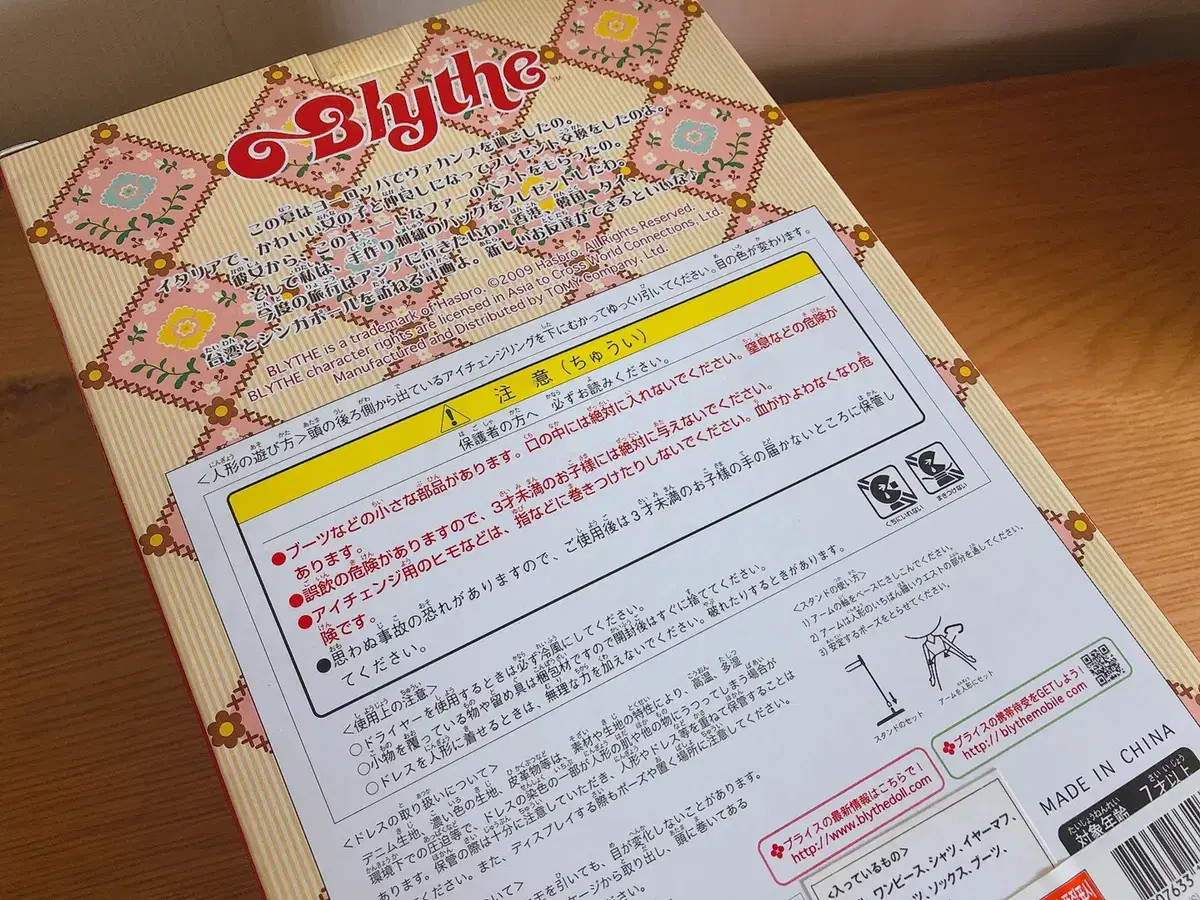 Blythe
この夏はヨーロッパでヴァカンスを過ごしたの。
イタリアで、かわいい女の子と仲良しになってプレゼント交換をしたのよ。
彼女から、このキュートなファーのベストをもらったの。
そして私は、手作り刺繍のバッグをプレゼントしたわ。
今度の旅行はアジアに行きたいわ!香港、韓国、タイ、
台湾とシンガポールを訪ねる計画よ。新しいお友達ができるといいな♪
BLYTHE is a trademark of Hasbro. ©2009 Hasbro. All Rights Reserved.
BLYTHE character rights are licensed in Asia to Cross World Connections, Ltd.
Manufactured and Distributed by TOMY Company, Ltd.
<人形の遊び方>頭の後ろ側から出ているアイチェンジリングを下にむかってゆっくり引いてください。目の色が変わります。
注意(ちゅうい)
保護者の方へ 必ずお読みください。
●ブーツなどの小さな部品があります。口の中には絶対に入れないでください。窒息などの危険が
あります。
●誤飲の危険がありますので、3才未満のお子様には絶対に与えないでください。
●アイチェンジ用のヒモなどは、指などに巻きつけたりしないでください。血がかよわなくなり危
険です。
●思わぬ事故の恐れがありますので、ご使用後は3才未満のお子様の手の届かないところに保管し
てください。
くちにいれない
まきつけない
<使用上の注意>
○ドライヤーを使用するときは必ず冷風にしてください。
○小物を覆っている物や留め具は梱包材ですので開封後はすぐに捨ててください。
○ドレスを人形に着せるときは、無理な力を加えないでください。破れたりするときがあります。
<スタンドの使い方>
1)アームの軸をベースにさしこんでください。
2)アームは人形のいちばん細いウエストの部分を通してください。
3)安定するポーズをとらせてください。
スタンドのセット
アームを人形にセット
<ドレスの取り扱いについて>
デニム生地、濃い色の生地、皮革物等は、素材や生地の特性により、高温、多湿
環境下での圧迫等で、ドレスの染色の一部が人形の肌や他の物にうつってしまう場合が
あります。保管の際は十分に注意していただき、人形やドレス等を重ねて保管することは
ください。また、ディスプレイする際もポーズや置く場所に注意してください。
ついて>
モを引いても、目が変化しないことがあります。
ケージから取り出し、頭に巻いてある
ブライスの携帯待受をGETしよう!
http://blythemobile.com
ブライスの最新情報はこちらで!
http://www.blythedoll.com
MADE IN CHINA
対象年齢 7才以上
<入っているもの>
ワンピース、シャツ、イヤーマフ、
ソックス、ブーツ、
07633